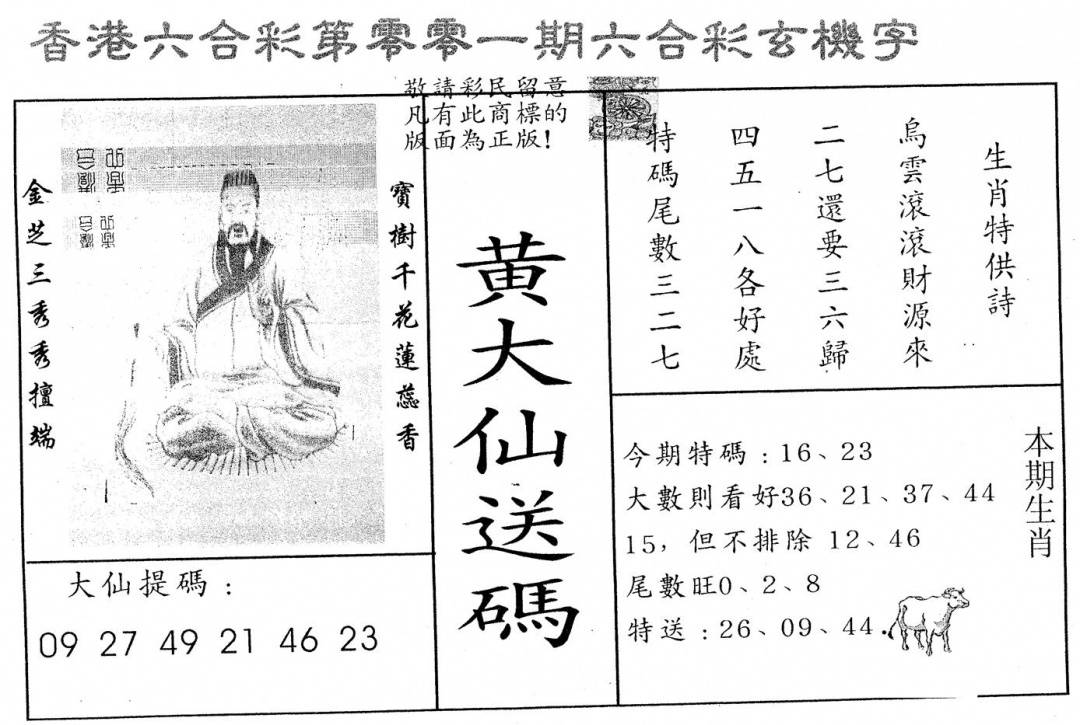 香港六合彩第零零一期六合彩玄機字
敬請彩民留意
凡有此商標的
版面為正版！
寶樹千花蓮蕊香
金芝三秀秀擅端
大仙提碼：
09 27 49 21 46 23
黃大仙送碼
生肖特供詩
烏雲滾滾財源來
二七還要三六歸
四五一八各好處
特碼尾數三二七
本期生肖
今期特碼：16、23
大數則看好36、21、37、44
15，但不排除 12、46
尾數旺0、2、8
特送：26、09、44.